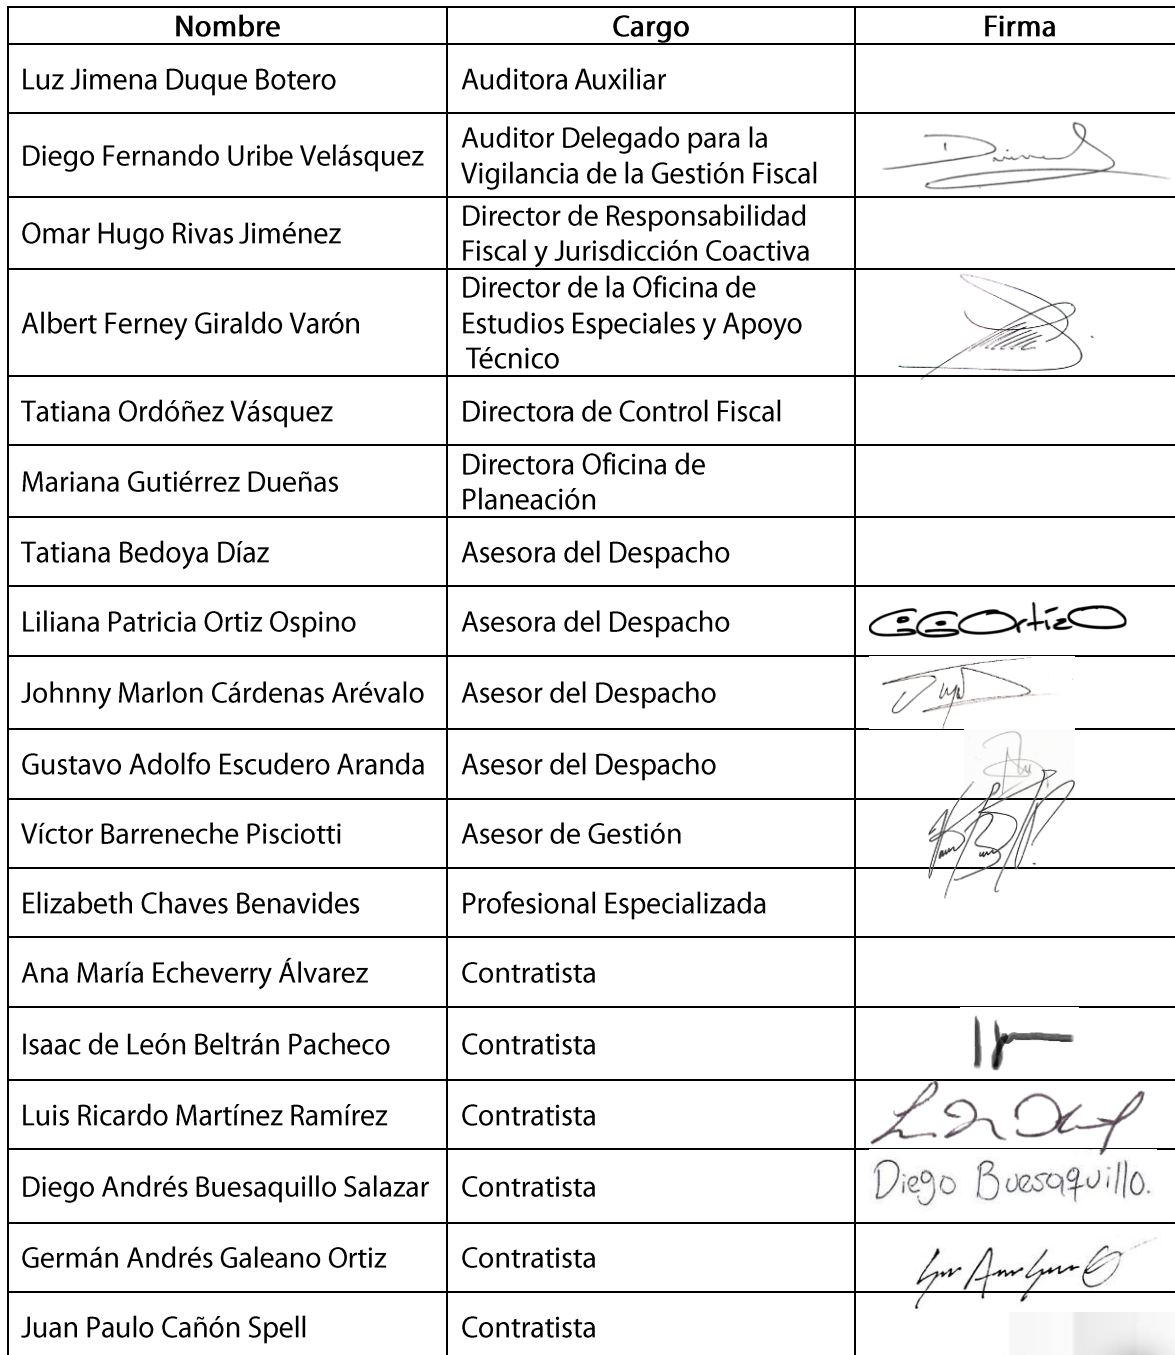 Nombre Cargo Firma
Luz Jimena Duque Botero Auditora Auxiliar
Diego Fernando Uribe Velásquez Auditor Delegado para la
Vigilancia de la Gestión Fiscal
Omar Hugo Rivas Jiménez Director de Responsabilidad
Fiscal y Jurisdicción Coactiva
Albert Ferney Giraldo Varón Director de la Oficina de
Estudios Especiales y Apoyo
Técnico
Tatiana Ordóñez Vásquez Directora de Control Fiscal
Mariana Gutiérrez Dueñas Directora Oficina de
Planeación
Tatiana Bedoya Díaz Asesora del Despacho
Liliana Patricia Ortiz Ospino Asesora del Despacho
Johnny Marlon Cárdenas Arévalo Asesor del Despacho
Gustavo Adolfo Escudero Aranda Asesor del Despacho
Víctor Barreneche Pisciotti Asesor de Gestión
Elizabeth Chaves Benavides Profesional Especializada
Ana María Echeverry Álvarez Contratista
Isaac de León Beltrán Pacheco Contratista
Luis Ricardo Martínez Ramírez Contratista
Diego Andrés Buesaquillo Salazar Contratista Diego Buesaquillo.
Germán Andrés Galeano Ortiz Contratista
Juan Paulo Cañón Spell Contratista